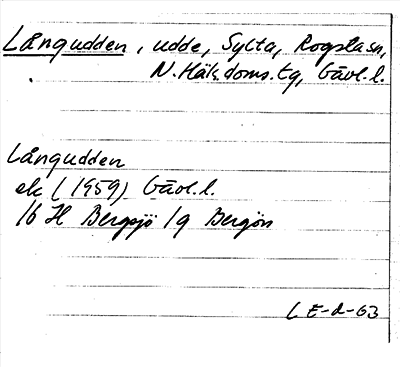 Långudden, udde, Sylta, Rogsta sn,
N. Häls. doms. tg, Gävl. l.
Långudden
ek (1959) Gävl. l.
16 H Bergsjö 1g Bergön
LE-d-63